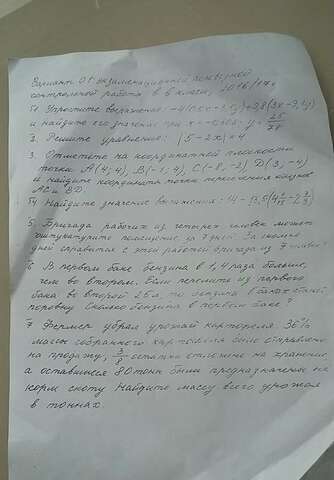 Вариант 01 экзаменационной переводной
контрольной работы в 6 классе, 2016/17г.
1. Упростите выражение:
и найдите его значение при x =
2. Решите уравнение: |5-2x|=4
3. Отметьте на координатной плоскости
точки A(4; 4), B(-1; 4), C(-8; -2) D(3; -4)
и найдите координаты точки пересечения отрезков
AC и BD.
4 Найдите значение выражения: 14 -
5. Бригада рабочих из четырех человек может
оштукатурить помещение за 7 дней. За сколько
дней справится с этой работой бригада из 7 человек
6 В первом баке бензина в 1,4 раза больше,
чем во втором. Если перелить из первого
бака во второй 25 л, то бензина в баках станет
поровну. Сколько бензина в первом баке?
7 Фермер убрал урожай картофеля 36%
массы собранного картофеля было отправлено
на продажу, 3/8 остатка отложено на хранение,
а оставшиеся 80 тонн были предназначены на
корм скоту. Найдите массу всего урожая
в тоннах.